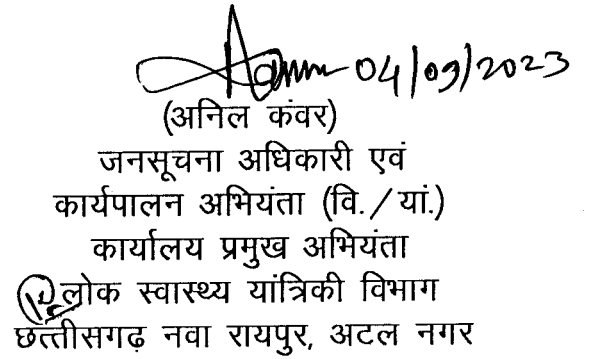 04/09/2023
(अनिल कंवर)
जनसूचना अधिकारी एवं
कार्यपालन अभियंता (वि./यां.)
कार्यालय प्रमुख अभियंता
लोक स्वास्थ्य यांत्रिकी विभाग
छत्तीसगढ़ नवा रायपुर, अटल नगर